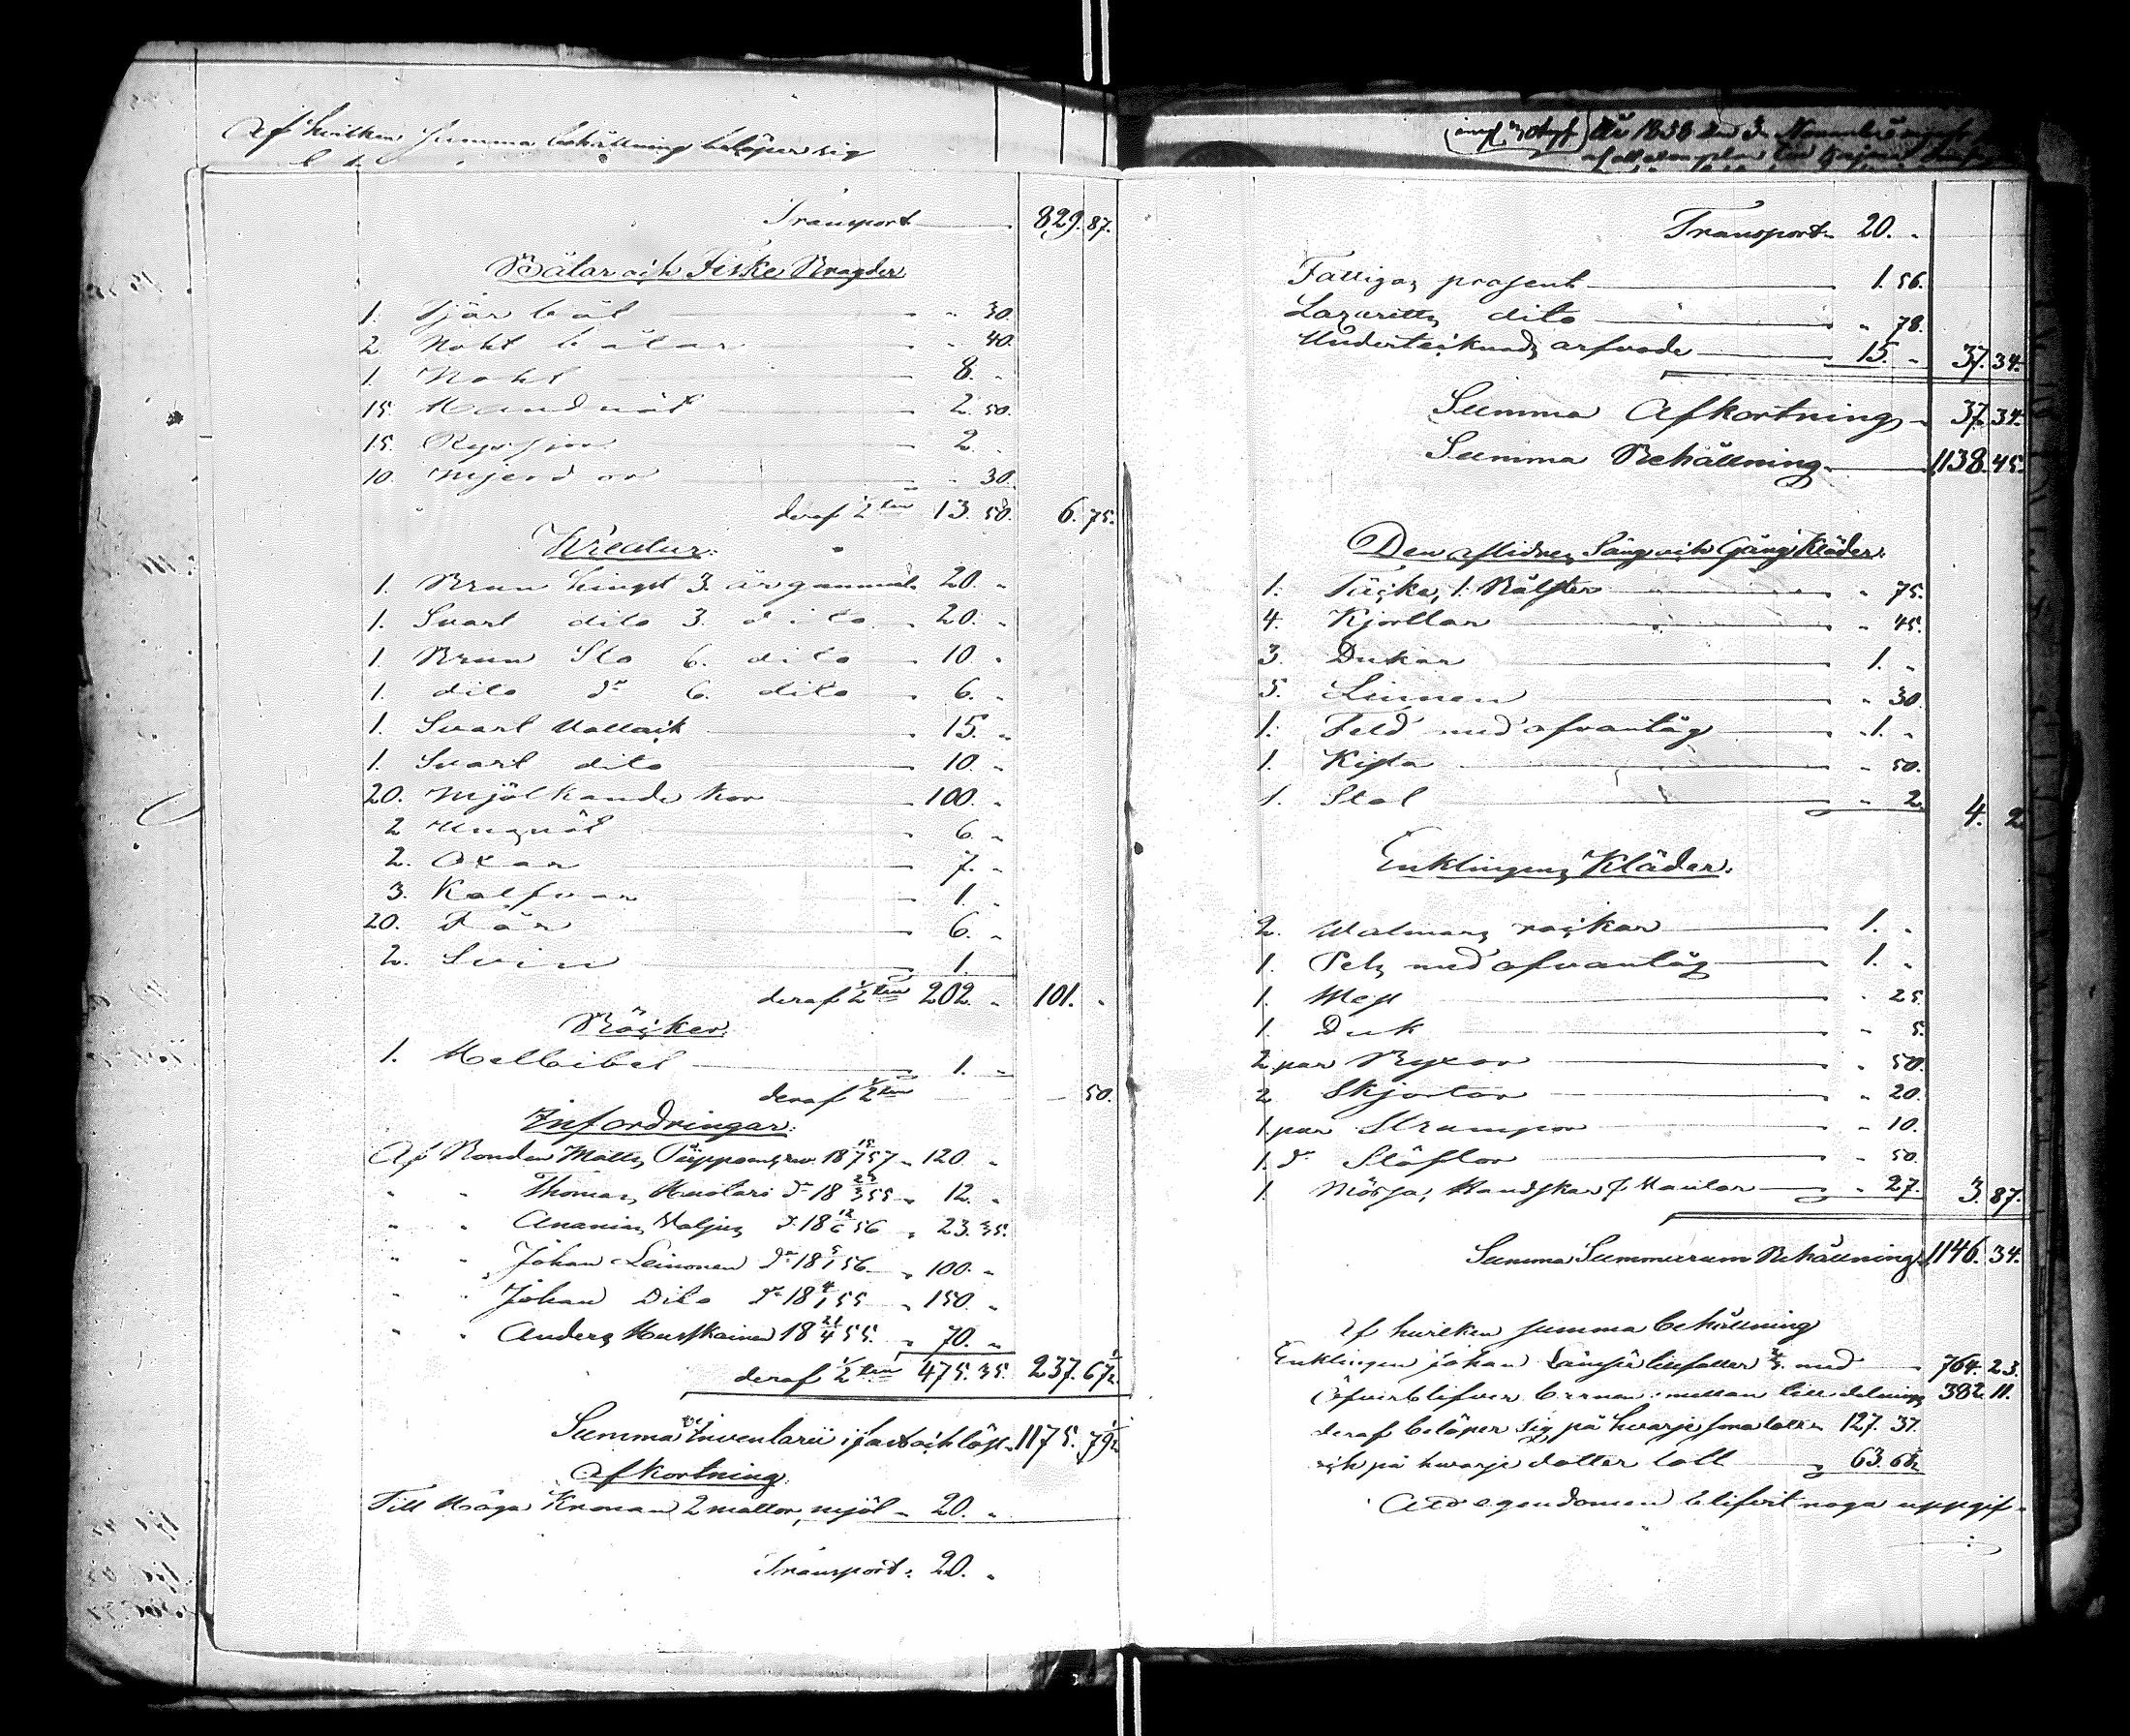 Af hvilken Summa behållning belöper sig
Transport 829. 87.
Båtar och Fiske Bragder
1. Tjär båt " 30.
2. Noht båtar " 40.
1. Noht 8. "
15. Hand nät 2. 50.
15. Ryssjor 2. "
10. Mjerdor " 30.
deraf 1/2 ten 13. 50. 6. 75.
Kreatur.
1. Brun hingst 3. år gammal 20. "
1. Svart dito 3. dito 20. "
1. Brun Sto 6. dito 10. "
1. dito do 6. dito 6. "
1. Svart Vallack 15. "
1. Svart dito 10. "
20. Mjölkande kor 100. "
2 Ungnöt 6. "
2. Oxar 7. "
3. Kalfvar 1. "
20. Får 6. "
2. Svin 1.
deraf 1/2 ten 202. " 101. "
Böcker.
1. Hel bibel 1. "
deraf 1/2 ten 50.
Infordringar.
Af Bonden Matts rev. 18 15/7 57 120. "
" " Thomas Huotari do 18 23/3 55 12. "
" " Ananias Valjus do 18 12/6 56 23. 35.
" " Johan Leinonen do 18 5/1 56 100. "
" " Johan Dito do 18 4/1 55 150. "
" " Anders 18 21/4 55. 70. "
deraf 1/2 ten 475. 35. 237. 67 1/2
Summa Inventarii i fast och löst 1175. 79 1/2
Afkortning.
Till Höga Kronan 2 mattor mjöl 20. "
Transport. 20. "
År 1858 den 3. November
Transport 20. "
Fattigas procent 1. 56.
Lazaretts dito " 78.
Undertecknads arfvode 15. " 37. 34.
Summa Afkortning 37. 34.
Summa Behållning 1138. 45.
Den aflidnes Säng och Gång Kläder.
1. Täcke, 1. Bålster " 75.
4. Kjortlar " 45.
3. Dukar 1. "
5. Linnen " 30.
1. Feld med afvantåg 1. "
1. Kista " 50.
1. Stol " 2 4. 2
Enklingens Kläder.
2. Walmans rockar 1. "
1. Pels med afvantåg 1. "
1. West " 25.
1. Duk " 5.
2 par Byxor " 50.
2 Skjortor " 20.
1 par Strumpor " 10.
1. do Stöflor " 50.
1. Mössa, Handskar & Vantar " 27. 3. 87.
Summa Summarum Behållning 1146. 34.
af hvilken summa behållning
Enklingen Johan tillfaller 2/3 med 764. 23.
Öfverblifver barnen emellan till delning 382. 11.
deraf belöper sig på hvarje sonalott 127. 37.
och på hvarje dotter lott 63. 68 1/2
Att egendomen blifvit noga uppgif-